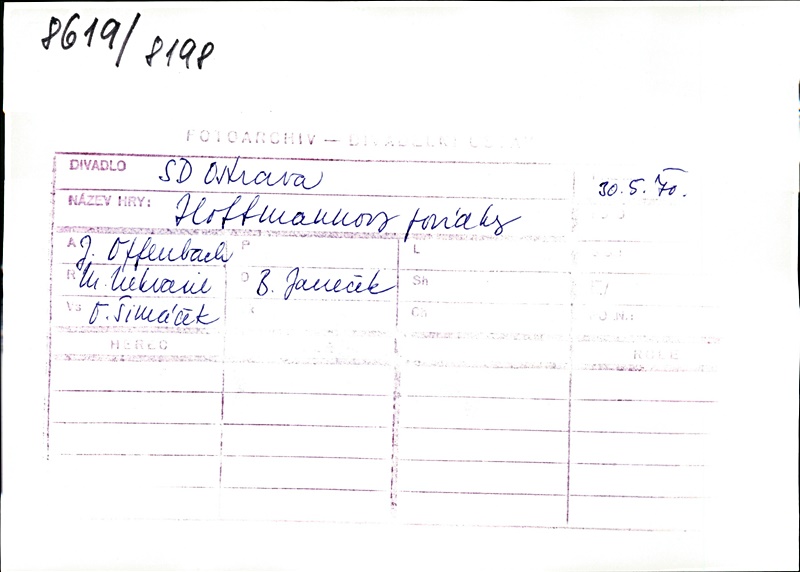 8619/8198
FOTOARCHIV — DIVADELNÍ ÚSTAV
DIVADLO SD Ostrava 30.5.70.
NÁZEV HRY: Hoffmannovy povídky
A J. Offenbach P L
R M. Nekvasil D B. Janeček Sh
Vs O. Šimáček Ch
HEREC ROLE